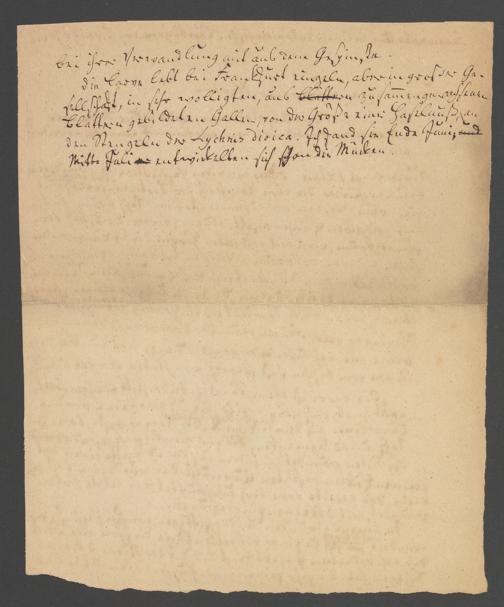 bei ihrer Verwandlung mit aus dem Gespinste.
Die Larve lebt bei Frankfurt einzeln, aber in großer Ge-
sellschaft, in sehr wolligten, aus Blättern zusammengewachsenen
Blättern gebildeten Gallen, von der Größe einer Haselnuß, an
den Stengeln der Lychnis dioica. Ich fand sie Ende Juni, und
Mitte Juli entwickelten sich schon die Mücken.